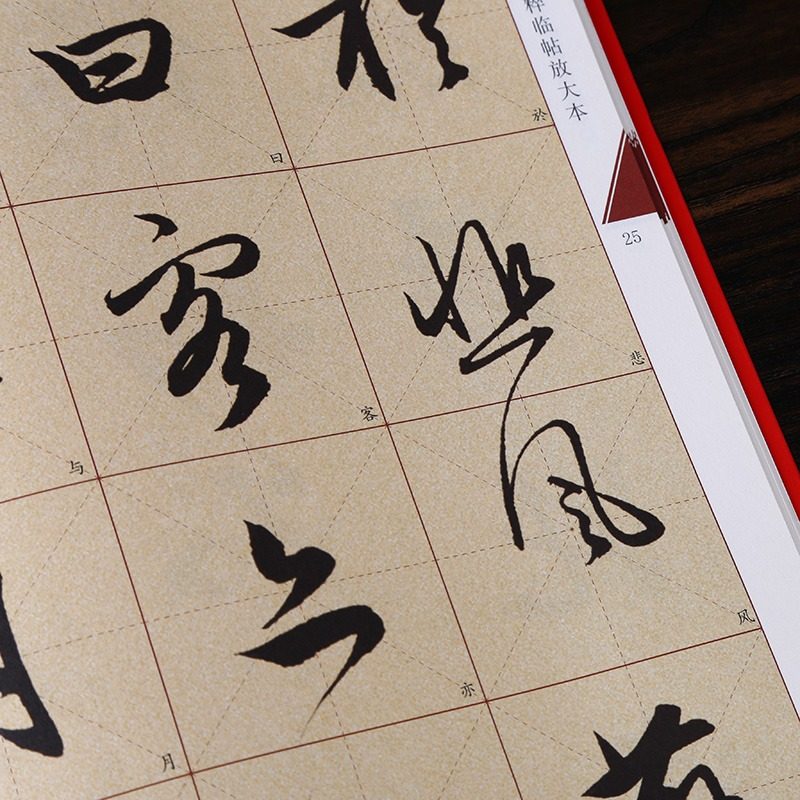 粹临帖放大本
25
於
於
悲
悲
風
风
曰
曰
客
客
亦
亦
与
月
月